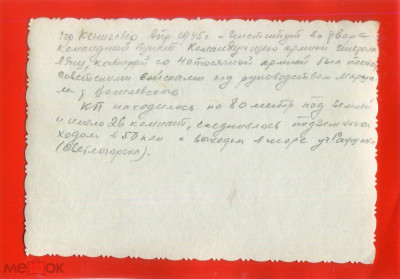 гор Кенигсберг апр. 1945 г. институт во дворе
Командный пункт Командующего армией генерала
Ляш, который со 40 тысячной армией был пленен
советскими войсками под руководством Марша
ла Василевского
КП находилось на 80 метр под землей
и имело 26 комнат, соединялось подземным
ходом в 50 клм с выходом в море у г. Раушена
(Светлогорска).
МЕШОК